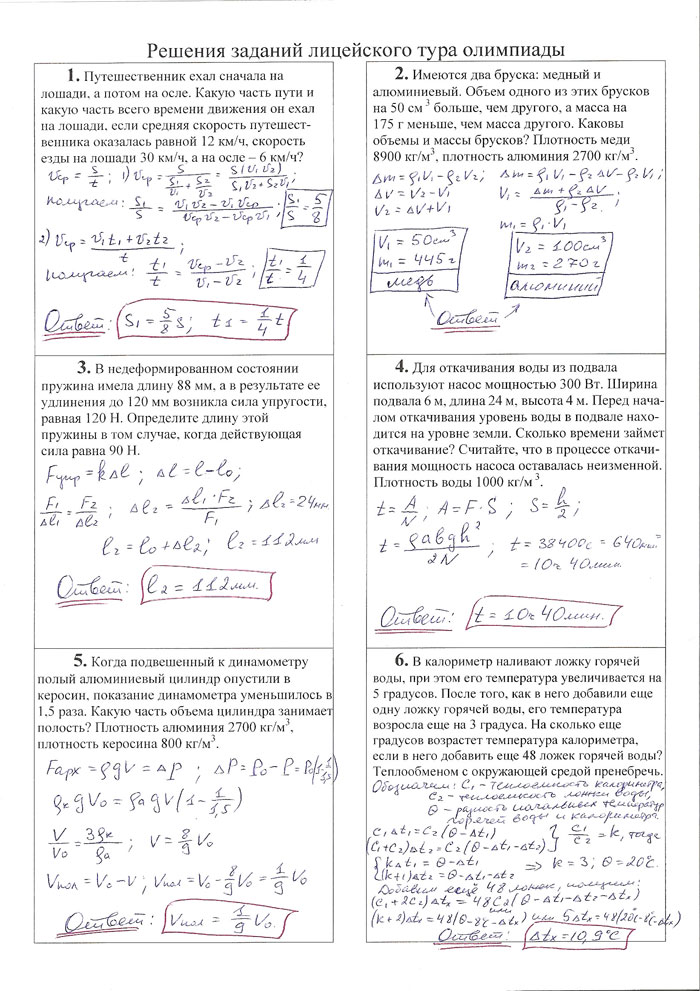 Решения заданий лицейского тура олимпиады
1. Путешественник ехал сначала на
лошади, а потом на осле. Какую часть пути и
какую часть всего времени движения он ехал
на лошади, если средняя скорость путешест-
венника оказалась равной 12 км/ч, скорость
езды на лошади 30 км/ч, а на осле – 6 км/ч?
υср = S/t ; 1) υср = S/(S₁/υ₁ + S₂/υ₂) = S(υ₁υ₂)/(S₁υ₂ + S₂υ₁);
получаем: S₁/S = (υ₁υ₂ – υ₁υср)/(υсрυ₂ – υсрυ₁); S₁/S = 5/8
2) υср = (υ₁t₁ + υ₂t₂)/t ;
получаем: t₁/t = (υср – υ₂)/(υ₁ – υ₂); t₁/t = 1/4
Ответ: S₁ = 5/8 S; t1 = 1/4 t
2. Имеются два бруска: медный и
алюминиевый. Объем одного из этих брусков
на 50 см ³ больше, чем другого, а масса на
175 г меньше, чем масса другого. Каковы
объемы и массы брусков? Плотность меди
8900 кг/м³, плотность алюминия 2700 кг/м³.
Δm = ρ₁V₁ – ρ₂V₂; Δm = ρ₁V₁ – ρ₂ΔV – ρ₂V₁;
ΔV = V₂ – V₁ V₁ = (Δm + ρ₂ΔV)/(ρ₁ – ρ₂);
V₂ = ΔV + V₁
m₁ = ρ₁·V₁
V₁ = 50см³ V₂ = 100см³
m₁ = 445г m₂ = 270г
медь алюминий
Ответ
3. В недеформированном состоянии
пружина имела длину 88 мм, а в результате ее
удлинения до 120 мм возникла сила упругости,
равная 120 Н. Определите длину этой
пружины в том случае, когда действующая
сила равна 90 Н.
Fупр = kΔl ; Δl = l – l₀;
F₁/Δl₁ = F₂/Δl₂ ; Δl₂ = Δl₁·F₂/F₁ ; Δl₂ = 24мм
l₂ = l₀ + Δl₂; l₂ = 112мм
Ответ: l₂ = 112мм.
4. Для откачивания воды из подвала
используют насос мощностью 300 Вт. Ширина
подвала 6 м, длина 24 м, высота 4 м. Перед нача-
лом откачивания уровень воды в подвале нахо-
дится на уровне земли. Сколько времени займет
откачивание? Считайте, что в процессе откачи-
вания мощность насоса оставалась неизменной.
Плотность воды 1000 кг/м ³.
t = A/N ; A = F·S ; S = h/2;
t = ρabgh²/2N ; t = 38400с = 640мин
= 10ч 40мин.
Ответ: t = 10ч 40мин.
5. Когда подвешенный к динамометру
полый алюминиевый цилиндр опустили в
керосин, показание динамометра уменьшилось в
1,5 раза. Какую часть объема цилиндра занимает
полость? Плотность алюминия 2700 кг/м³,
плотность керосина 800 кг/м³.
Fарх = ρgV = ΔP ; ΔP = P₀ – P =
ρкgV₀ = ρаgV(1 – 1/1,5)
V/V₀ = 3ρк/ρа ; V = 8/9 V₀
Vпол = V₀ – V; Vпол = V₀ – 8/9 V₀ = 1/9 V₀
Ответ: Vпол = 1/9 V₀.
6. В калориметр наливают ложку горячей
воды, при этом его температура увеличивается на
5 градусов. После того, как в него добавили еще
одну ложку горячей воды, его температура
возросла еще на 3 градуса. На сколько еще
градусов возрастет температура калориметра,
если в него добавить еще 48 ложек горячей воды?
Теплообменом с окружающей средой пренебречь.
Обозначим: C₁ – теплоемкость калориметра,
C₂ – теплоемкость ложки воды,
θ – разность начальных температур
горячей воды и калориметра.
C₁Δt₁ = C₂(θ – Δt₁)
(C₁+C₂)Δt₂ = C₂(θ – Δt₁ – Δt₂) } C₁/C₂ = k, тогда
{ kΔt₁ = θ – Δt₁
(k+1)Δt₂ = θ – Δt₁ – Δt₂ ⇒ k = 3; θ = 20°C.
Добавим ещё 48 ложек, получим:
(C₁+2C₂)Δtₓ = 48C₂(θ – Δt₁ – Δt₂ – Δtₓ)
или
(k+2)Δtₓ = 48(θ – 8 – Δtₓ) или 5Δtₓ = 48(20 – 8 – Δtₓ)
Ответ: Δtₓ = 10,9°C